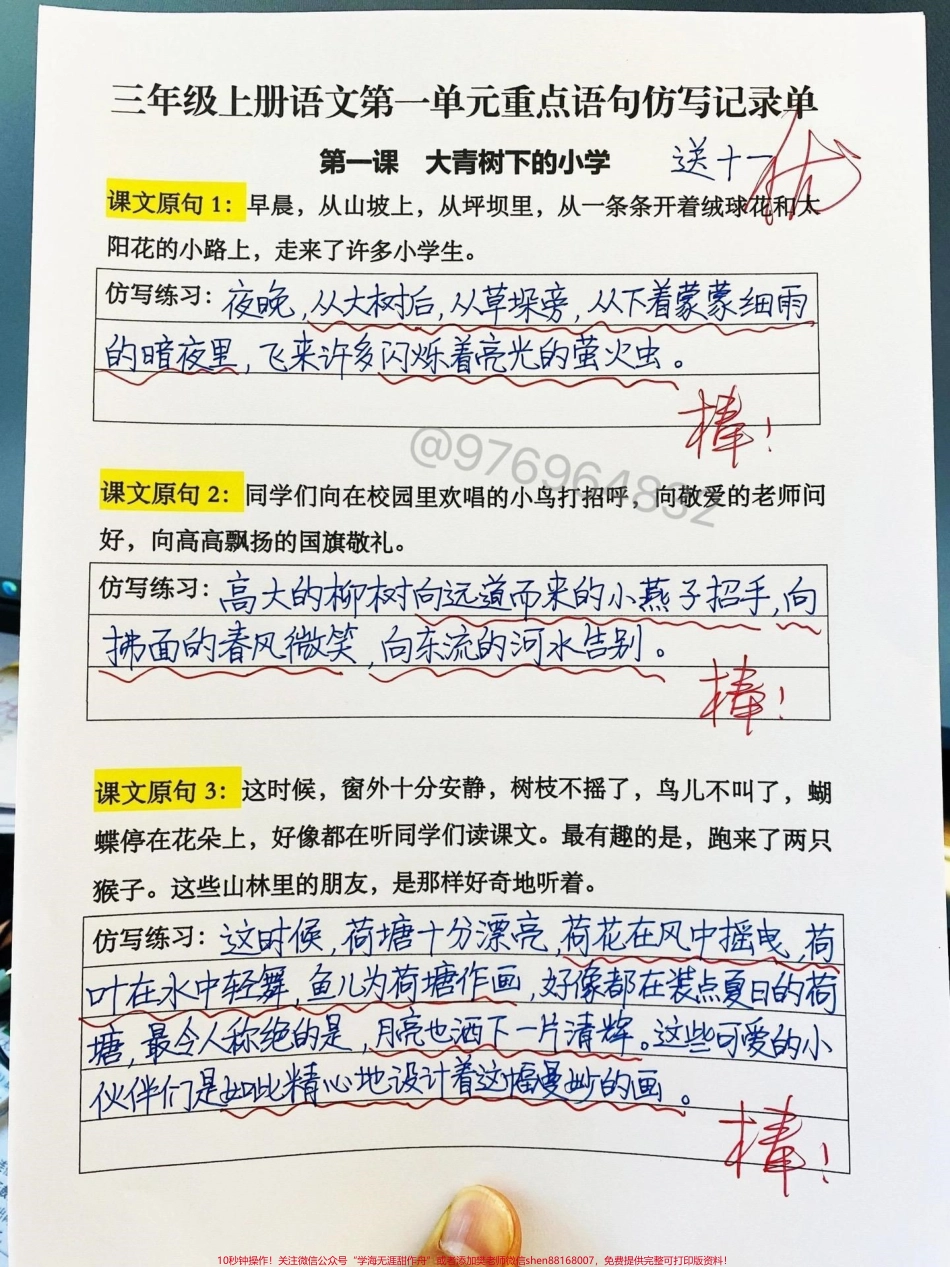 三年级上册语文第一单元重点语句仿写记录单
第一课 大青树下的小学
送十一
优
课文原句1：早晨，从山坡上，从坪坝里，从一条条开着绒球花和太
阳花的小路上，走来了许多小学生。
仿写练习：夜晚，从大树后，从草垛旁，从下着蒙蒙细雨
的暗夜里，飞来许多闪烁着亮光的萤火虫。
棒！
@976964832
课文原句2：同学们向在校园里欢唱的小鸟打招呼，向敬爱的老师问
好，向高高飘扬的国旗敬礼。
仿写练习：高大的柳树向远道而来的小燕子招手，向
拂面的春风微笑，向东流的河水告别。
棒！
课文原句3：这时候，窗外十分安静，树枝不摇了，鸟儿不叫了，蝴
蝶停在花朵上，好像都在听同学们读课文。最有趣的是，跑来了两只
猴子。这些山林里的朋友，是那样好奇地听着。
仿写练习：这时候，荷塘十分漂亮，荷花在风中摇曳，荷
叶在水中轻舞，鱼儿为荷塘作画，好像都在装点夏日的荷
塘，最令人称绝的是，月亮也洒下一片清辉。这些可爱的小
伙伴们是如此精心地设计着这幅曼妙的画。
棒！
10秒钟操作！关注微信公众号“学海无涯甜作舟”或者添加樊老师微信shen88168007，免费提供完整可打印版资料！